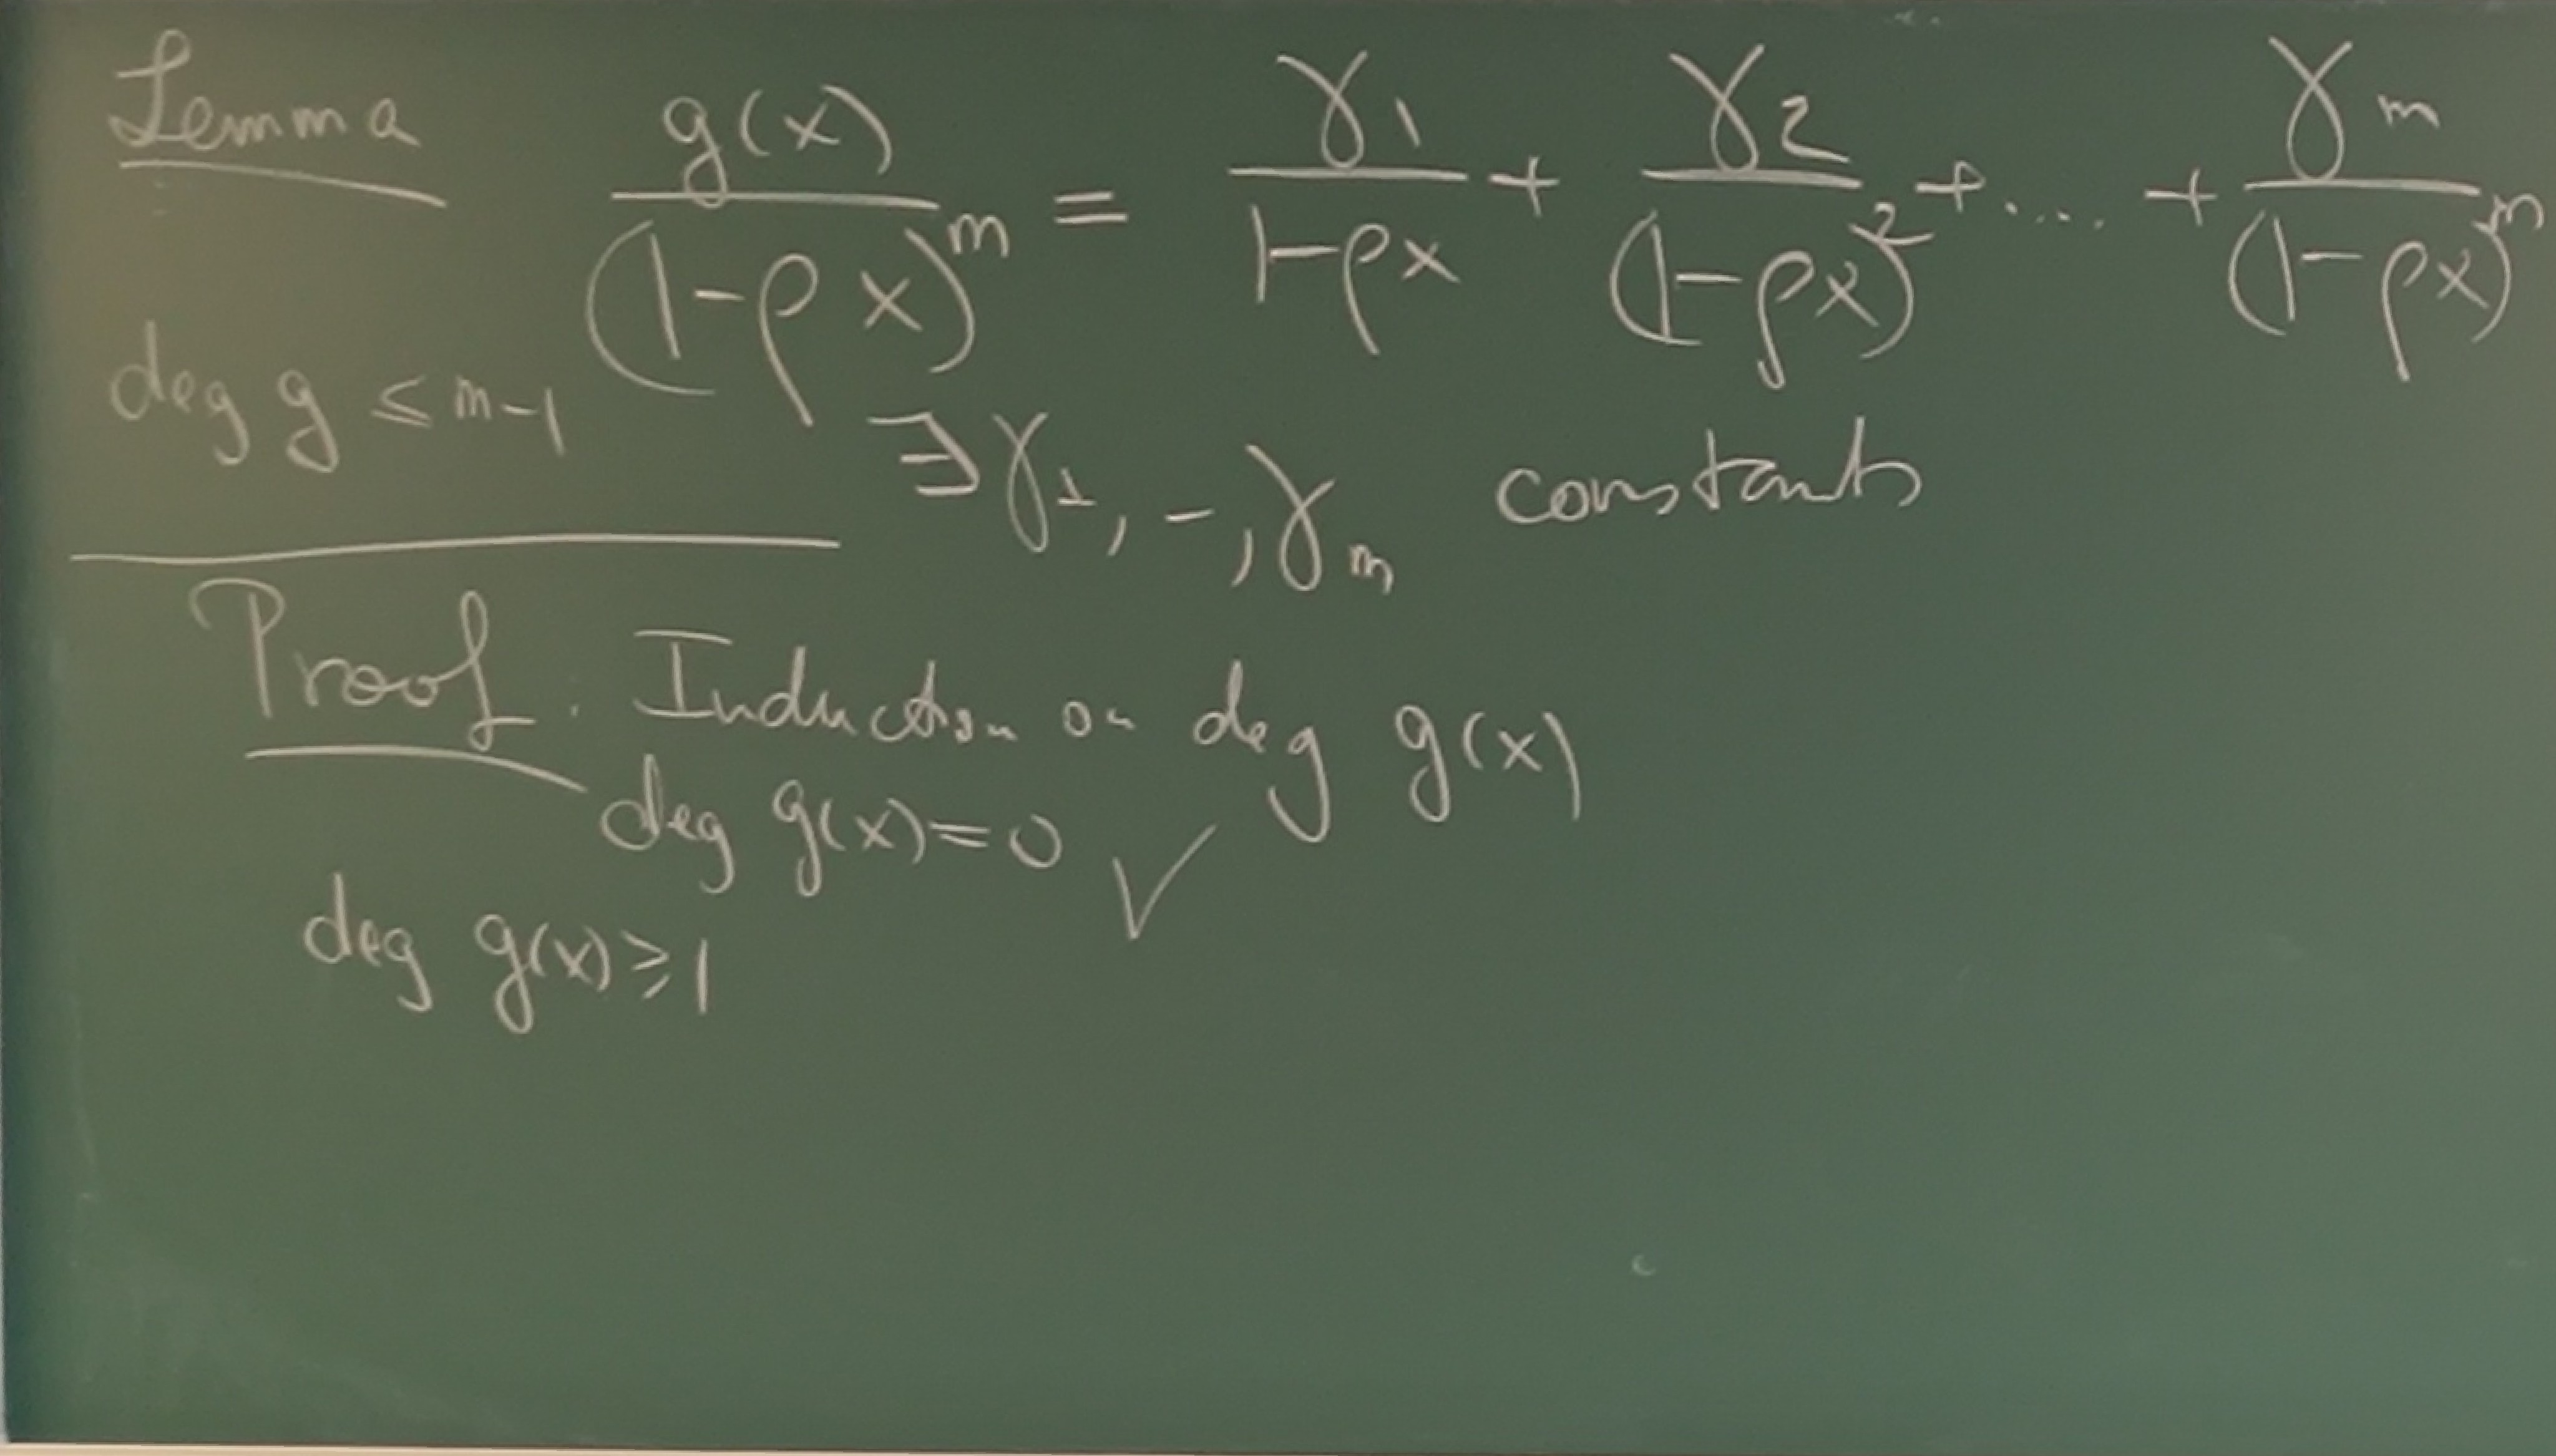 Lemma g(x)/(1-ρx)^m = γ1/(1-ρx) + γ2/(1-ρx)^2 + .... + γm/(1-ρx)^m
deg g ≤ m-1
∃γ1, -, γm constants
Proof. Induction on deg g(x)
deg g(x)=0 ✓
deg g(x)≥1